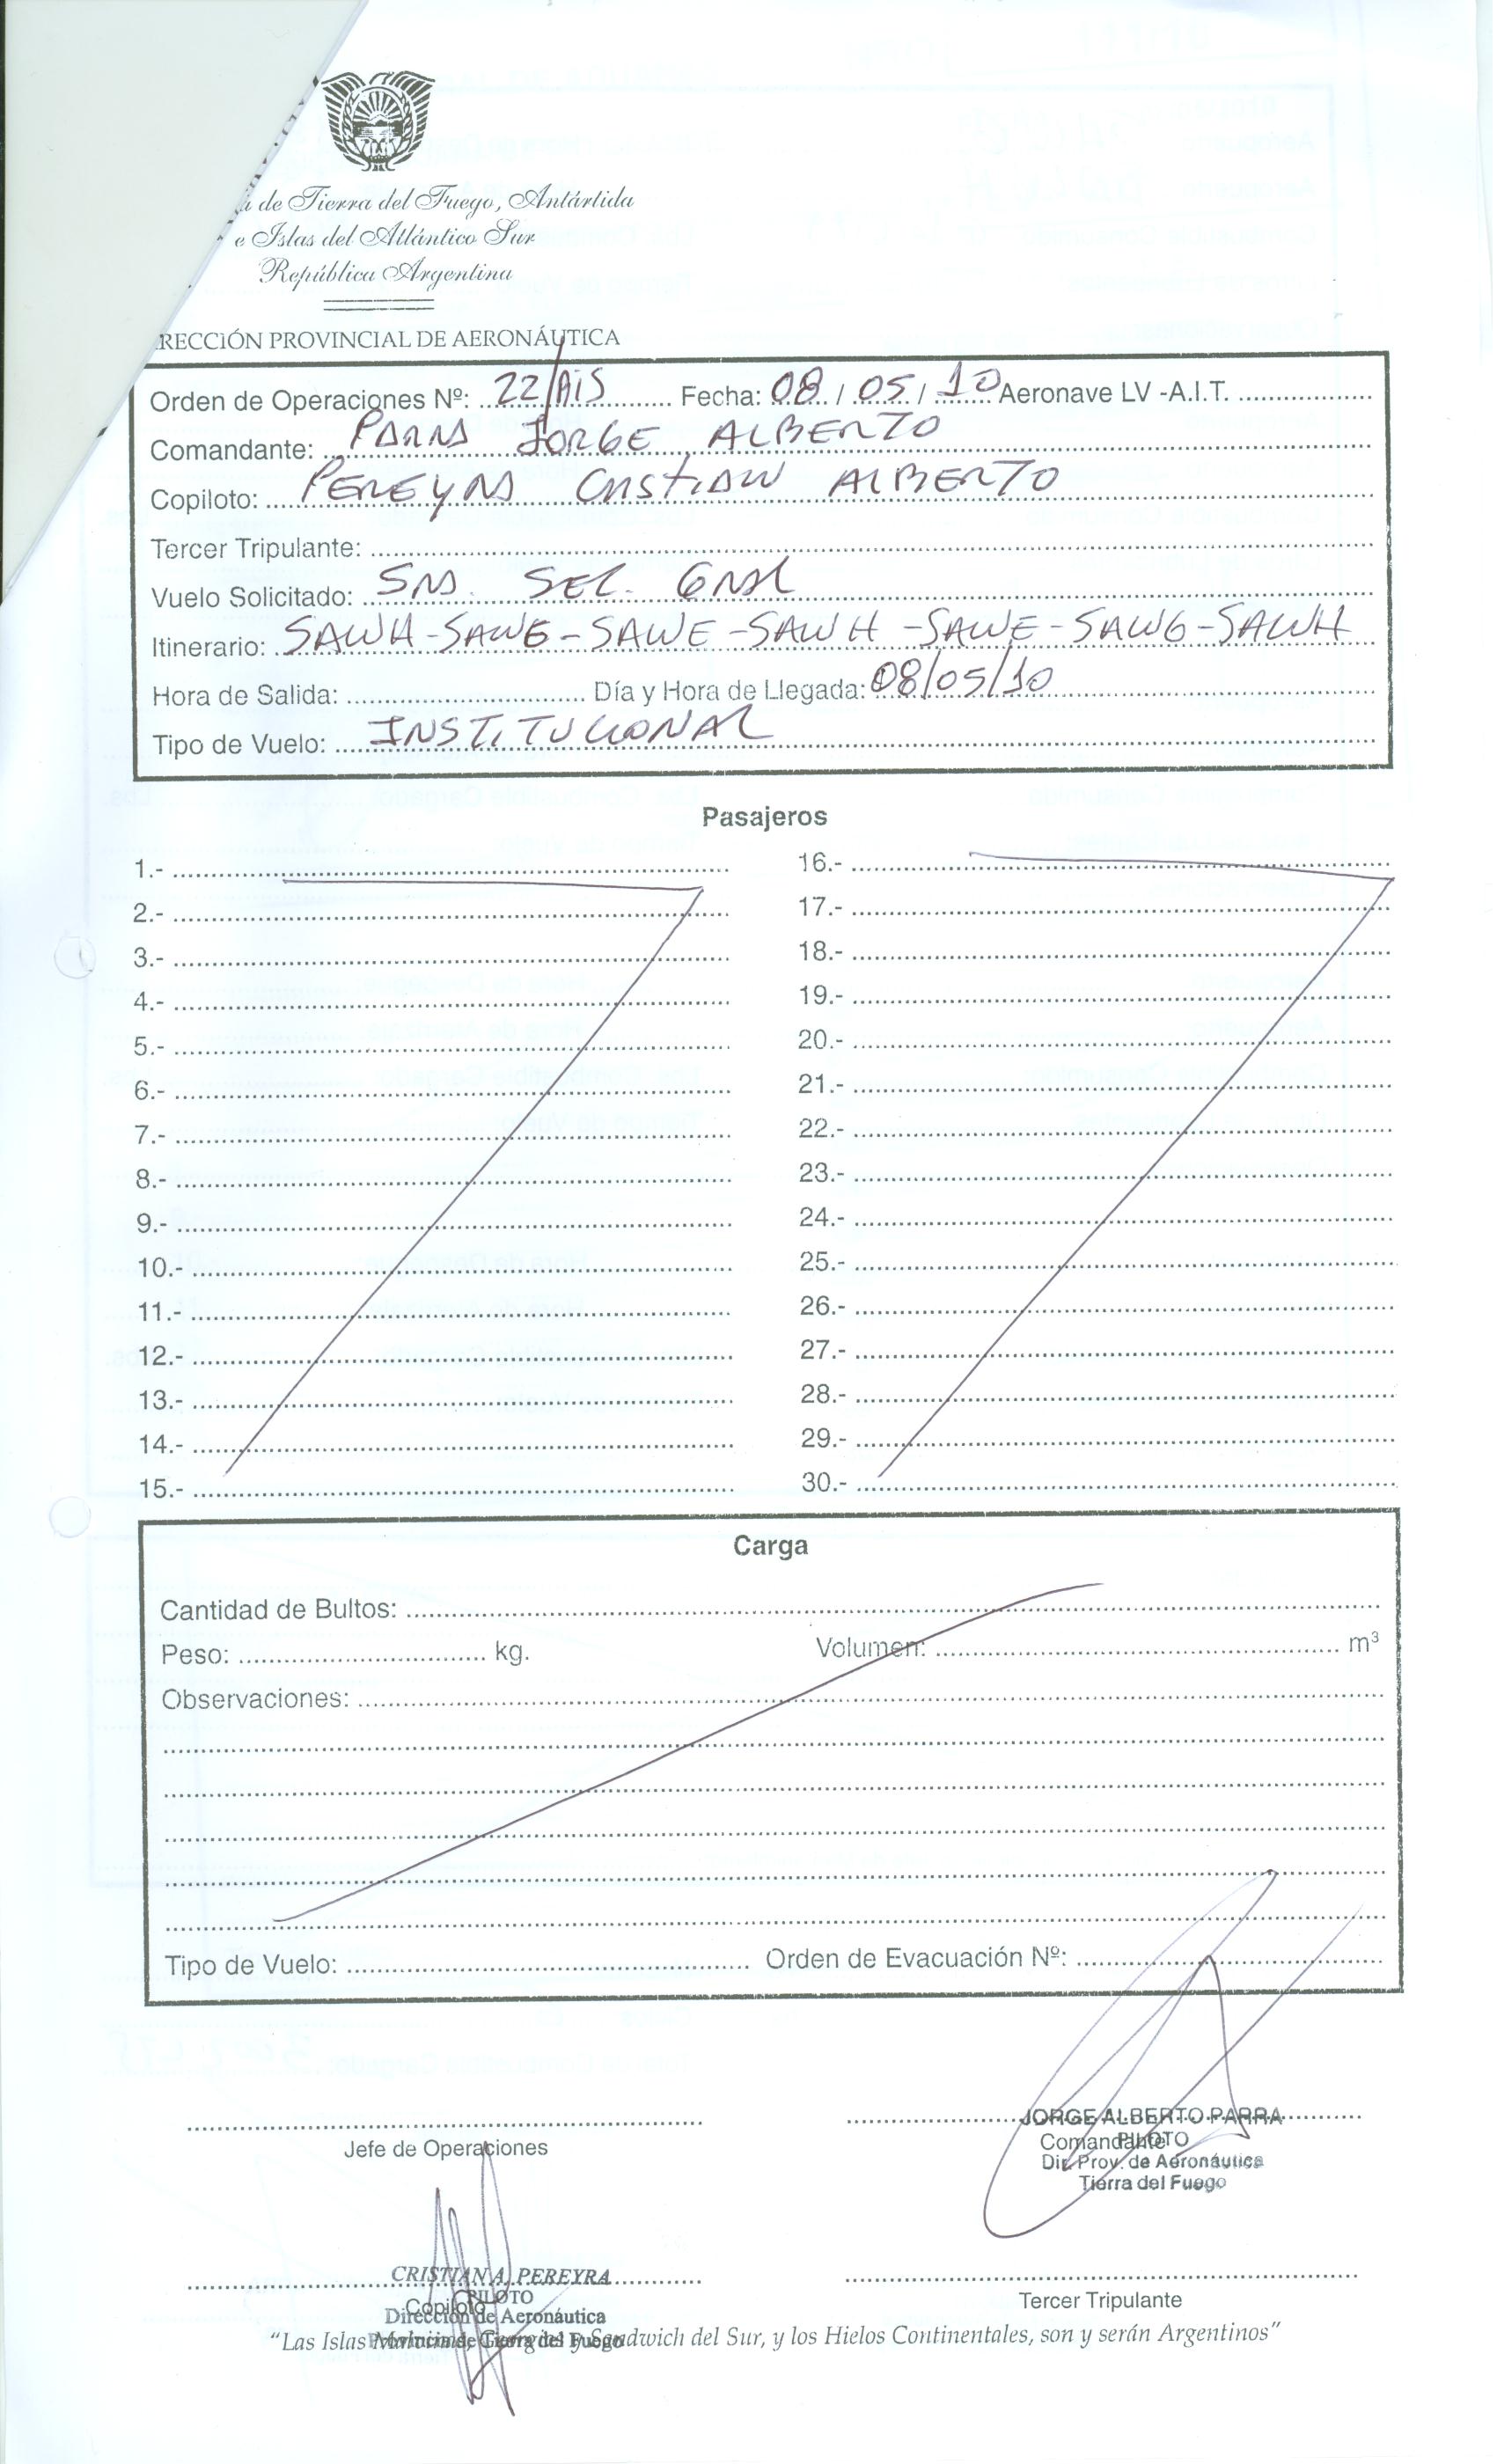 de Tierra del Fuego, Antártida
e Islas del Atlántico Sur
República Argentina
RECCIÓN PROVINCIAL DE AERONÁUTICA
Orden de Operaciones Nº: 22/AIS Fecha: 08 / 05 / 10 Aeronave LV -A.I.T.
Comandante: PARRA JORGE ALBERTO
Copiloto: PEREYRA CRISTIAN ALBERTO
Tercer Tripulante:
Vuelo Solicitado: SRA. SEC. GRAL
Itinerario: SAWH-SAWG-SAWE-SAWH-SAWE-SAWG-SAWH
Hora de Salida: Día y Hora de Llegada: 08/05/10
Tipo de Vuelo: INSTITUCIONAL
Pasajeros
1.- 16.-
2.- 17.-
3.- 18.-
4.- 19.-
5.- 20.-
6.- 21.-
7.- 22.-
8.- 23.-
9.- 24.-
10.- 25.-
11.- 26.-
12.- 27.-
13.- 28.-
14.- 29.-
15.- 30.-
Carga
Cantidad de Bultos:
Peso: kg. Volumen: m³
Observaciones:
Tipo de Vuelo: Orden de Evacuación Nº:
JORGE ALBERTO PARRA
Jefe de Operaciones Comandante
PILOTO
Dir. Prov. de Aeronáutica
Tierra del Fuego
CRISTIAN A. PEREYRA
PILOTO
Copiloto Tercer Tripulante
Dirección de Aeronáutica
Provincia de Tierra del Fuego
"Las Islas Malvinas, Georgias y Sandwich del Sur, y los Hielos Continentales, son y serán Argentinos"